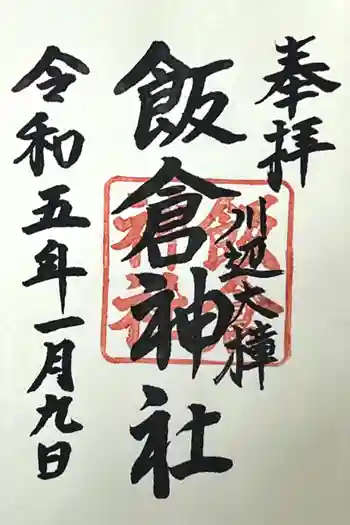 奉拝
川辺大樟
飯倉神社
飯倉
神社
令和五年一月九日